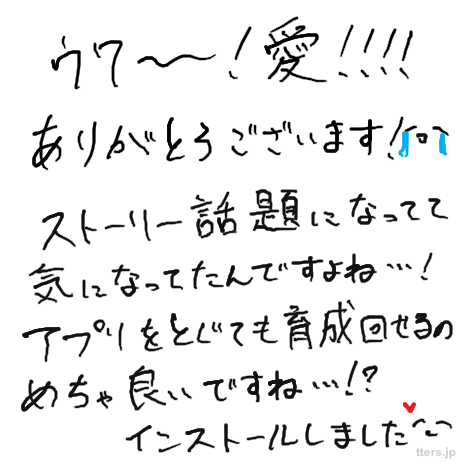 ウワ〜!愛!!!!
ありがとうございます!
ストーリー話題になってて
気になってたんですよね…!
アプリをとじても育成回せるの
めちゃ良いですね…!?
インストールしました
tters.jp